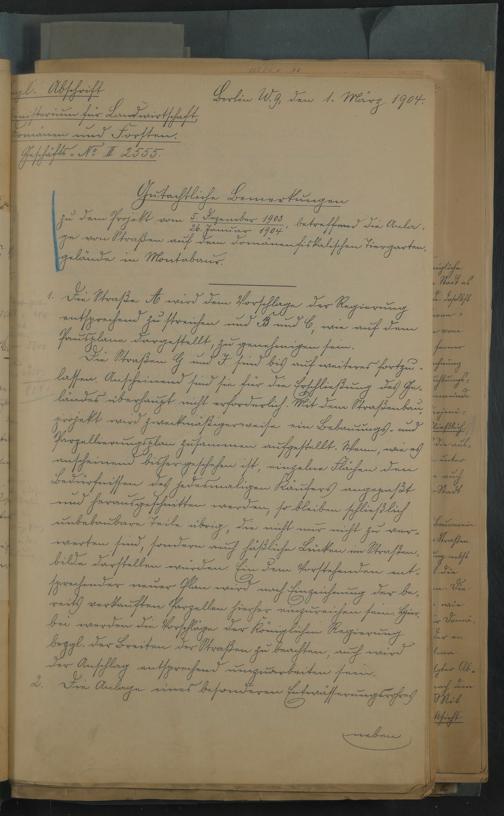 gl. Abschrift
Berlin W. 9, den 1. März 1904.
nisterium für Landwirtschaft,
omänen und Forsten.
Geschäfts-No II 2555.
Gutachtliche Bemerkungen
zu dem Projekt vom 5. Dezember 1903 / 26. Januar 1904, betreffend die Anla-
ge von Straßen auf dem domänenfiskalischen Tiergarten-
gelände in Montabaur.
1. Die Straße A wird dem Vorschlage der Regierung
entsprechend zu streichen und B und C, wie auf dem
Hauptplane dargestellt, zu genehmigen sein.
Die Straßen G und J sind bis auf weiteres fortzu-
lassen. Anscheinend sind sie für die Erschließung des Ge-
ländes überhaupt nicht erforderlich. Mit dem Straßenbau-
projekt wird zweckmäßigerweise ein Bebauungs- und
Parzellierungsplan zusammen aufgestellt. Wenn, wie es
anscheinend bisher geschehen ist, einzelne Flächen den
Bedürfnissen des jedesmaligen Käufers angepaßt
und herausgeschnitten werden, so bleiben schließlich
unbebaubare Teile übrig, die nicht nur nicht zu ver-
werten sind, sondern auch häßliche Lücken im Straßen-
bilde darstellen würden. Ein dem Vorstehenden ent-
sprechender neuer Plan wird nach Einzeichnung der be-
reits verkauften Parzellen hierher einzureichen sein. Hier
bei werden die Vorschläge der Königlichen Regierung
bezgl. der Breiten der Straßen zu beachten, auch wird
der Anschlag entsprechend umzuarbeiten sein.
2. Die Anlage eines besonderen Entwässerungsrohres
neben